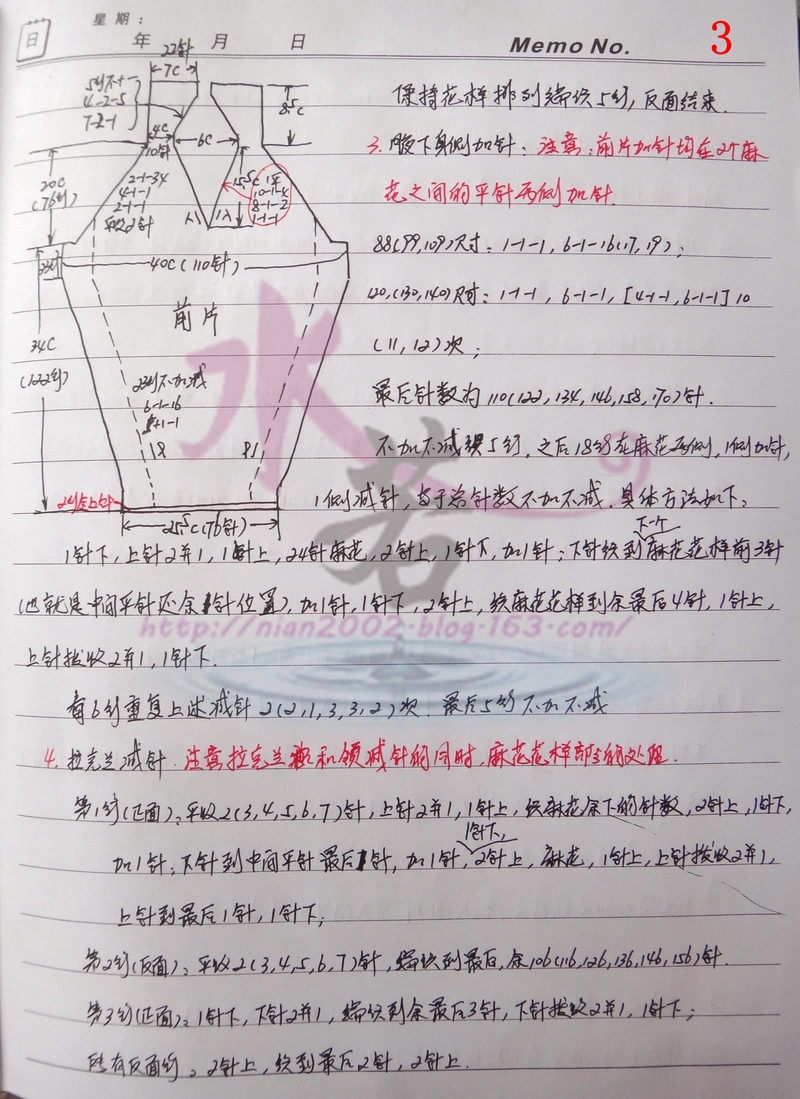 日
星期:
年 月 日
Memo No.
3
22针
7C
5行不+
4-2-5
7-2-1
4C
10针
6C
8.5C
20C
(76行)
2-1-34
4-1-1
2-1-1
平收2针
15.5C
1平
10-1-4
8-1-2
1-1-1
40C(110针)
前片
34C
(122行)
23行不加减
6-1-16
18
25.5C(76针)
保持花样排列编织5行,反面结束.
3. 腋下身侧加针: 注意:前片加针均在2个麻
花之间的平针两侧加针.
88(99,109)尺寸: 1-1-1, 6-1-16(17,19);
120,(130,140)尺寸: 1-1-1, 6-1-1, [4-1-1,6-1-1]10
(11,12)次;
最后针数为110(122,134,146,158,170)针.
不加不减织5行,之后18行在麻花两侧,1侧加针,
1侧减针,当于总针数不加不减.具体方法如下:
下个
1针下,上针2并1,1针上,24针麻花,2针上,1针下,加1针;下针织到麻花花样前3针
(也就是中间平针还余1针位置),加1针,1针下,2针上,织麻花花样到余最后4针,1针上,
http://nian2002.blog.163.com/
上针拨收2并1,1针下.
每6行重复上述减针2(2,1,3,3,2)次.最后5行不加不减
4. 拉克兰减针.注意拉克兰和领减针的同时,麻花花样部分的处理.
第1行(正面):平收2(3,4,5,6,7)针,上针2并1,1针上,织麻花余下的针数,2针上,1针下,
1针下,
加1针;下针到中间平针最后1针,加1针,2针上,麻花,1针上,上针拨收2并1,
上针到最后1针,1针下;
第2行(反面):平收2(3,4,5,6,7)针,编织到最后,余106(116,126,136,146,156)针.
第3行(正面):1针下,下针2并1,编织到余最后3针,下针拨收2并1,1针下;
所有反面行:2针上,织到最后2针,2针上.
水若